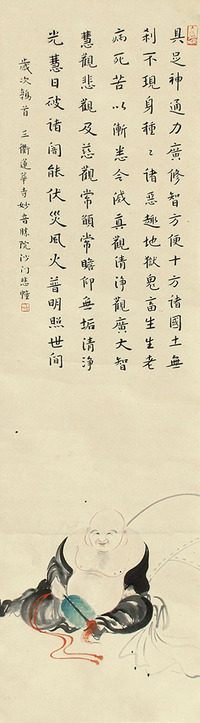 具足神通力廣修智方便十方諸國土無
刹不現身種々諸惡趣地獄鬼畜生生老
病死苦以漸悉令滅真觀清淨觀廣大智
慧觀悲觀及慈觀常願常瞻仰無垢清淨
光慧日破諸闇能伏災風火普明照世間
歲次鶉首 三衢蓮華寺妙音勝院沙门悲幢